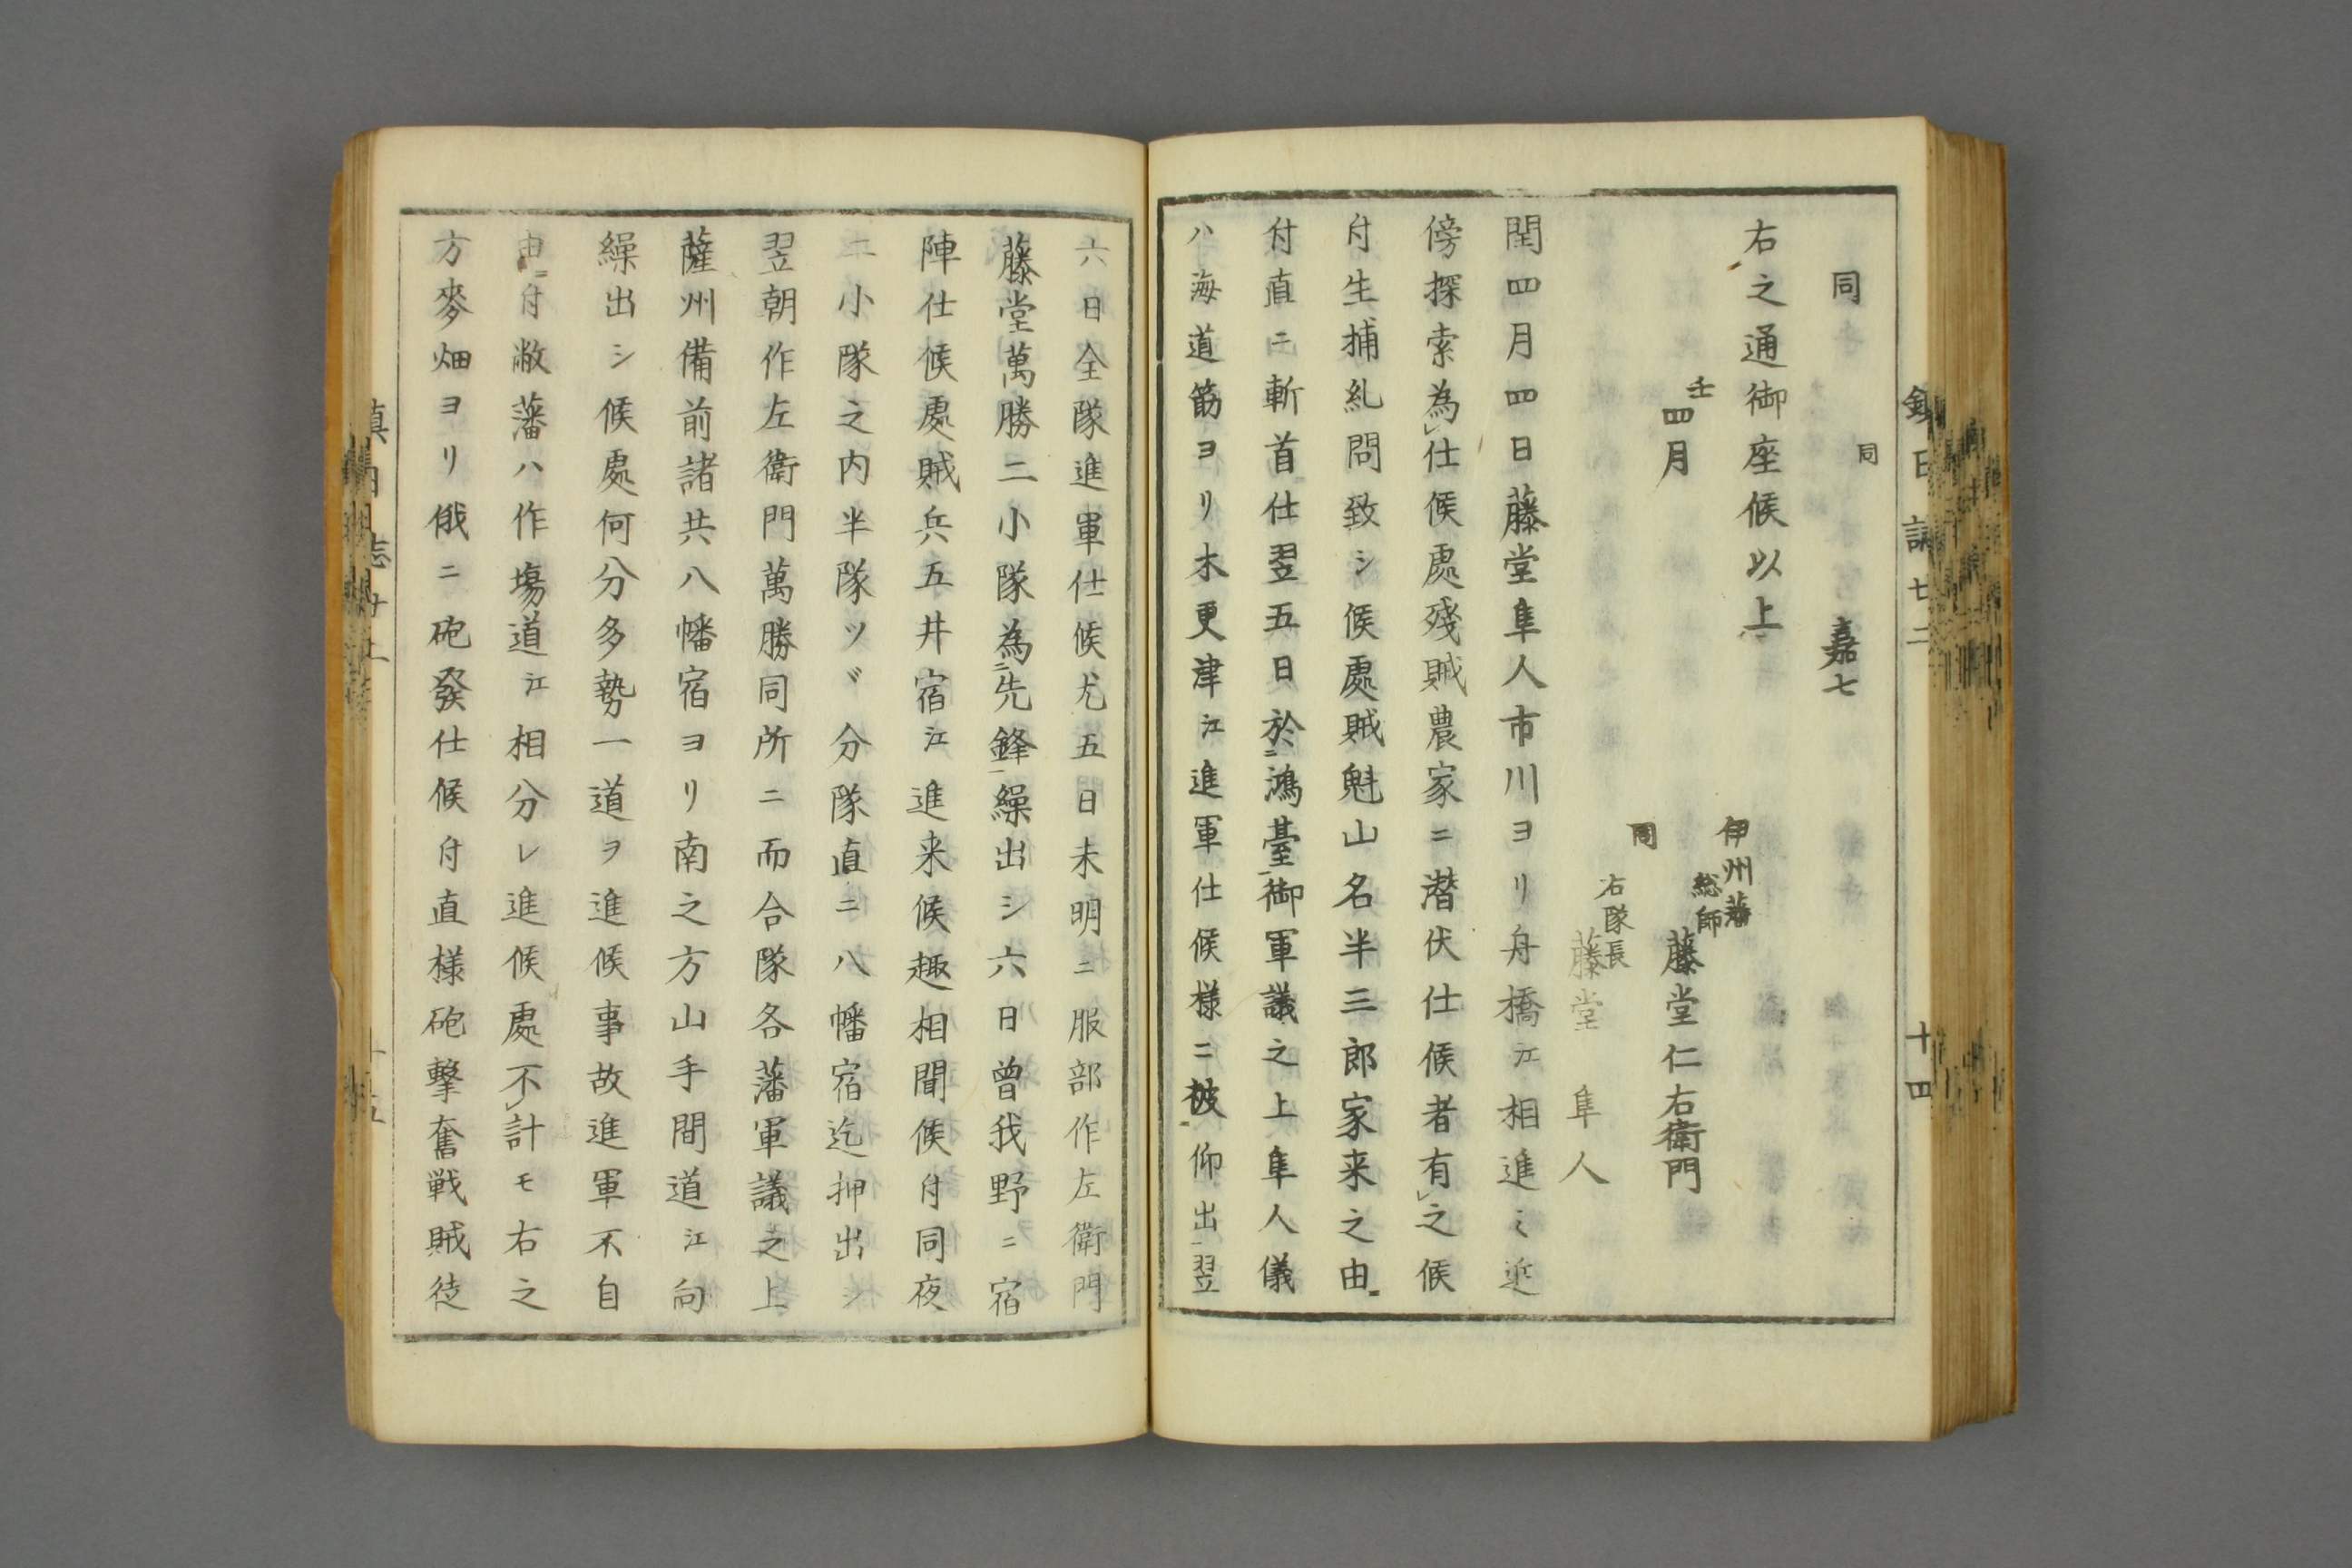 同
同
嘉七
右之通御座候以上
壬四月
伊州藩
総師
藤堂仁右衛門
同
右隊長
藤堂隼人
閏四月四日藤堂隼人市川ヨリ舟橋江相進ミ近
傍探索為仕候處殘賊農家ニ潜伏仕候者有之候
付生捕糺問致シ候處賊魁山名半三郎家来之由
付直ニ斬首仕翌五日於ニ鴻臺一御軍議之上隼人儀
ハ海道筋ヨリ木更津江進軍仕候様ニ被仰出翌
六日全隊進軍仕候尤五日未明ニ服部作左衛門
藤堂萬勝二小隊為ニ先鋒一繰出シ六日曽我野ニ宿
陣仕候處賊兵五井宿江進来候趣相聞候付同夜
二小隊之内半隊ツヾ分隊直ニ八幡宿迄押出シ
翌朝作左衛門萬勝同所ニ而合隊各藩軍議之上
薩州備前諸共八幡宿ヨリ南之方山手間道江向
繰出シ候處何分多勢一道ヲ進候事故進軍不自
由ニ付敝藩ハ作場道江相分レ進候處不計モ右之
方麥畑ヨリ俄ニ砲發仕候付直様砲撃奮戦賊徒